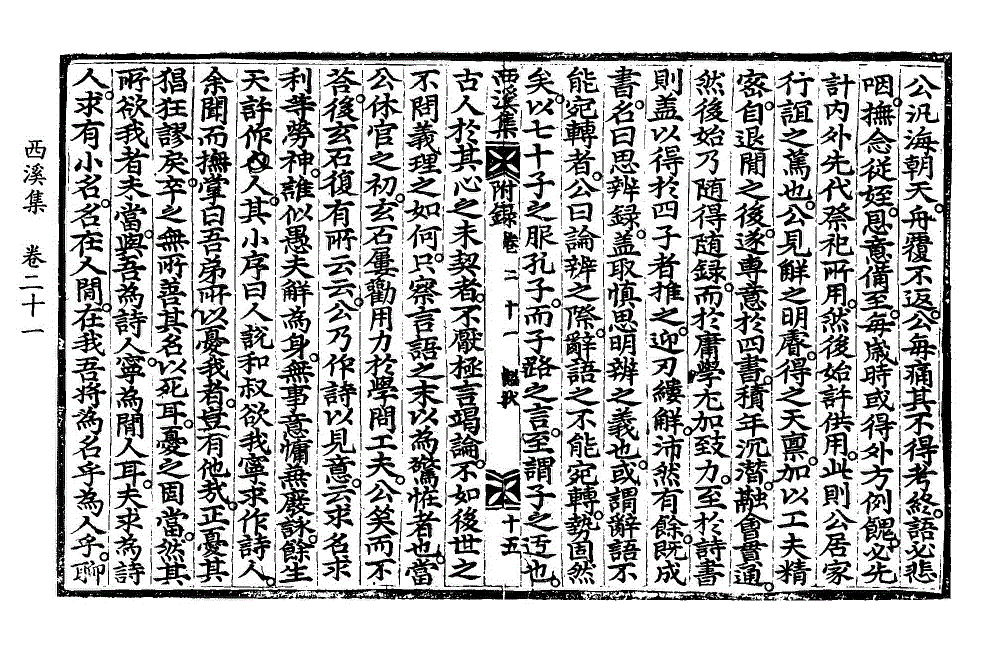 公汎海朝天。舟覆不返。公每痛其不得考終。語必悲
咽。撫念從姪。恩意備至。每歲時或得外方例餽。必先
計內外先代祭祀所用。然後始許供用。此則公居家
行誼之篤也。公見解之明。得之天禀。加以工夫精
密。自退閒之後。遂專意於四書。積年沉潛。融會貫通。
然後始乃隨得隨錄。而於庸學尤加致力。至於詩書
則盖以得於四子者推之。迎刃縷解。沛然有餘。旣成
書。名曰思辨錄。盖取愼思明辨之義也。或謂辭語不
能宛轉者。公曰論辨之際。辭語之不能宛轉。勢固然
矣。以七十子之服孔子。而子路之言。至謂子之迂也。
西溪集 附錄 卷二十一 十五
古人於其心之未契者。不厭極言竭論。不如後世之
不問義理之如何。只察言語之末以爲驚怪者也。當
公休官之初。玄石屢勸用力於學問工夫。公笑而不
答。後玄石復有所云云。公乃作詩以見意。云求名求
利等勞神。誰似愚夫解爲身。無事意慵無廢詠。餘生
天許作人。其小序曰人說和叔欲我寧求作詩人。
余聞而撫掌曰吾弟所以憂我者。豈有他哉。正憂其
猖狂謬戾。卒之無所善其名以死耳。憂之固當。然其
所欲我者夫當。與吾爲詩人。寧爲閒人耳。夫求爲詩
人。求有小名。名在人間。在我吾將爲名乎爲人乎。聊
西溪集 卷二十一